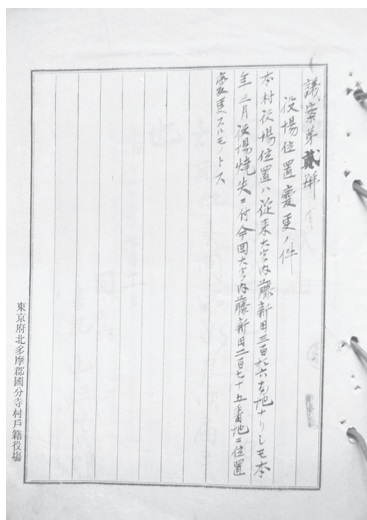 議案第貳號
役場位置変更ノ件
本村役場位置ハ従来大字内藤新田三百六十六番地ナリシモ本
年三月役場焼失ニ付今回大字内藤新田二百七十五番地ニ位置
変更スルモノトス
東京府北多摩郡國分寺村戸籍役場